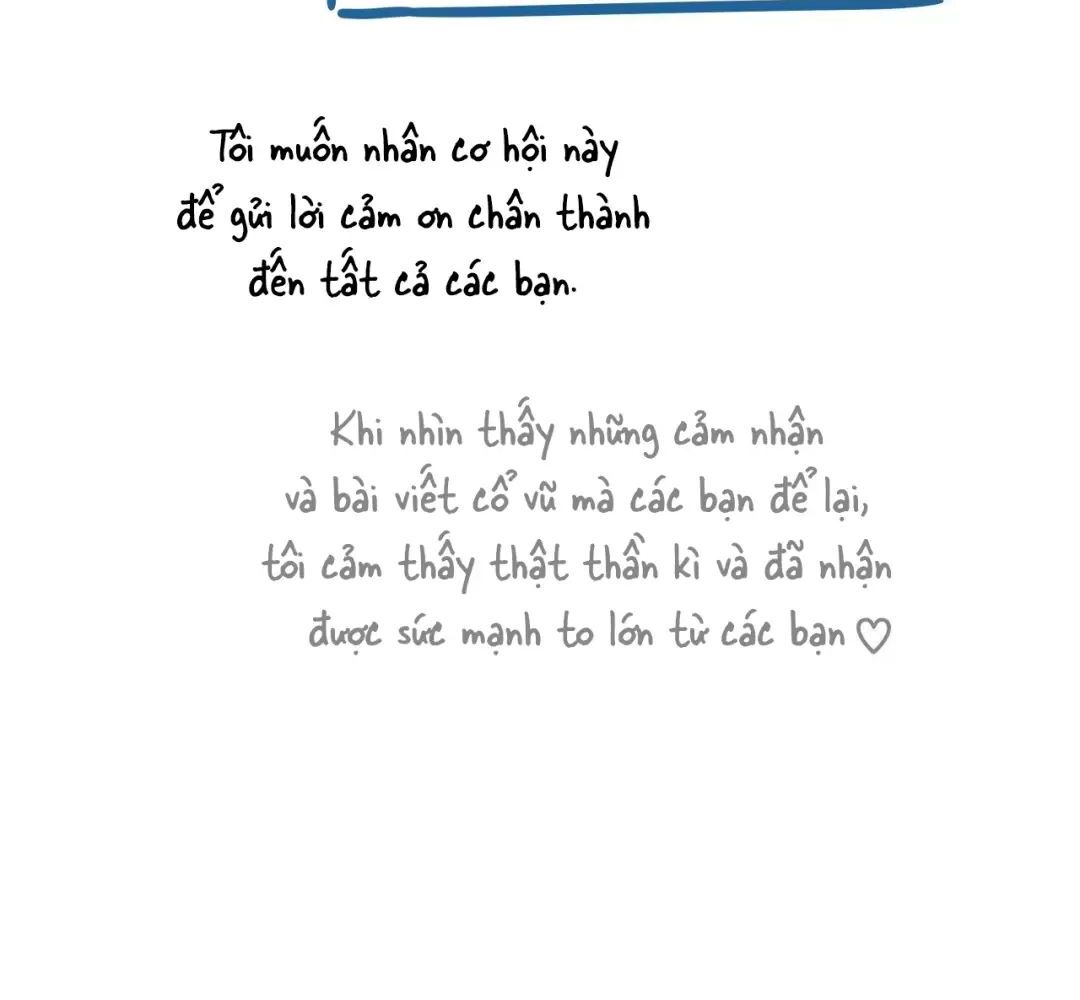 Tôi muốn nhân cơ hội này
để gửi lời cảm ơn chân thành
đến tất cả các bạn.
Khi nhìn thấy những cảm nhận
và bài viết cổ vũ mà các bạn để lại,
tôi cảm thấy thật thần kì và đã nhận
được sức mạnh to lớn từ các bạn ♡